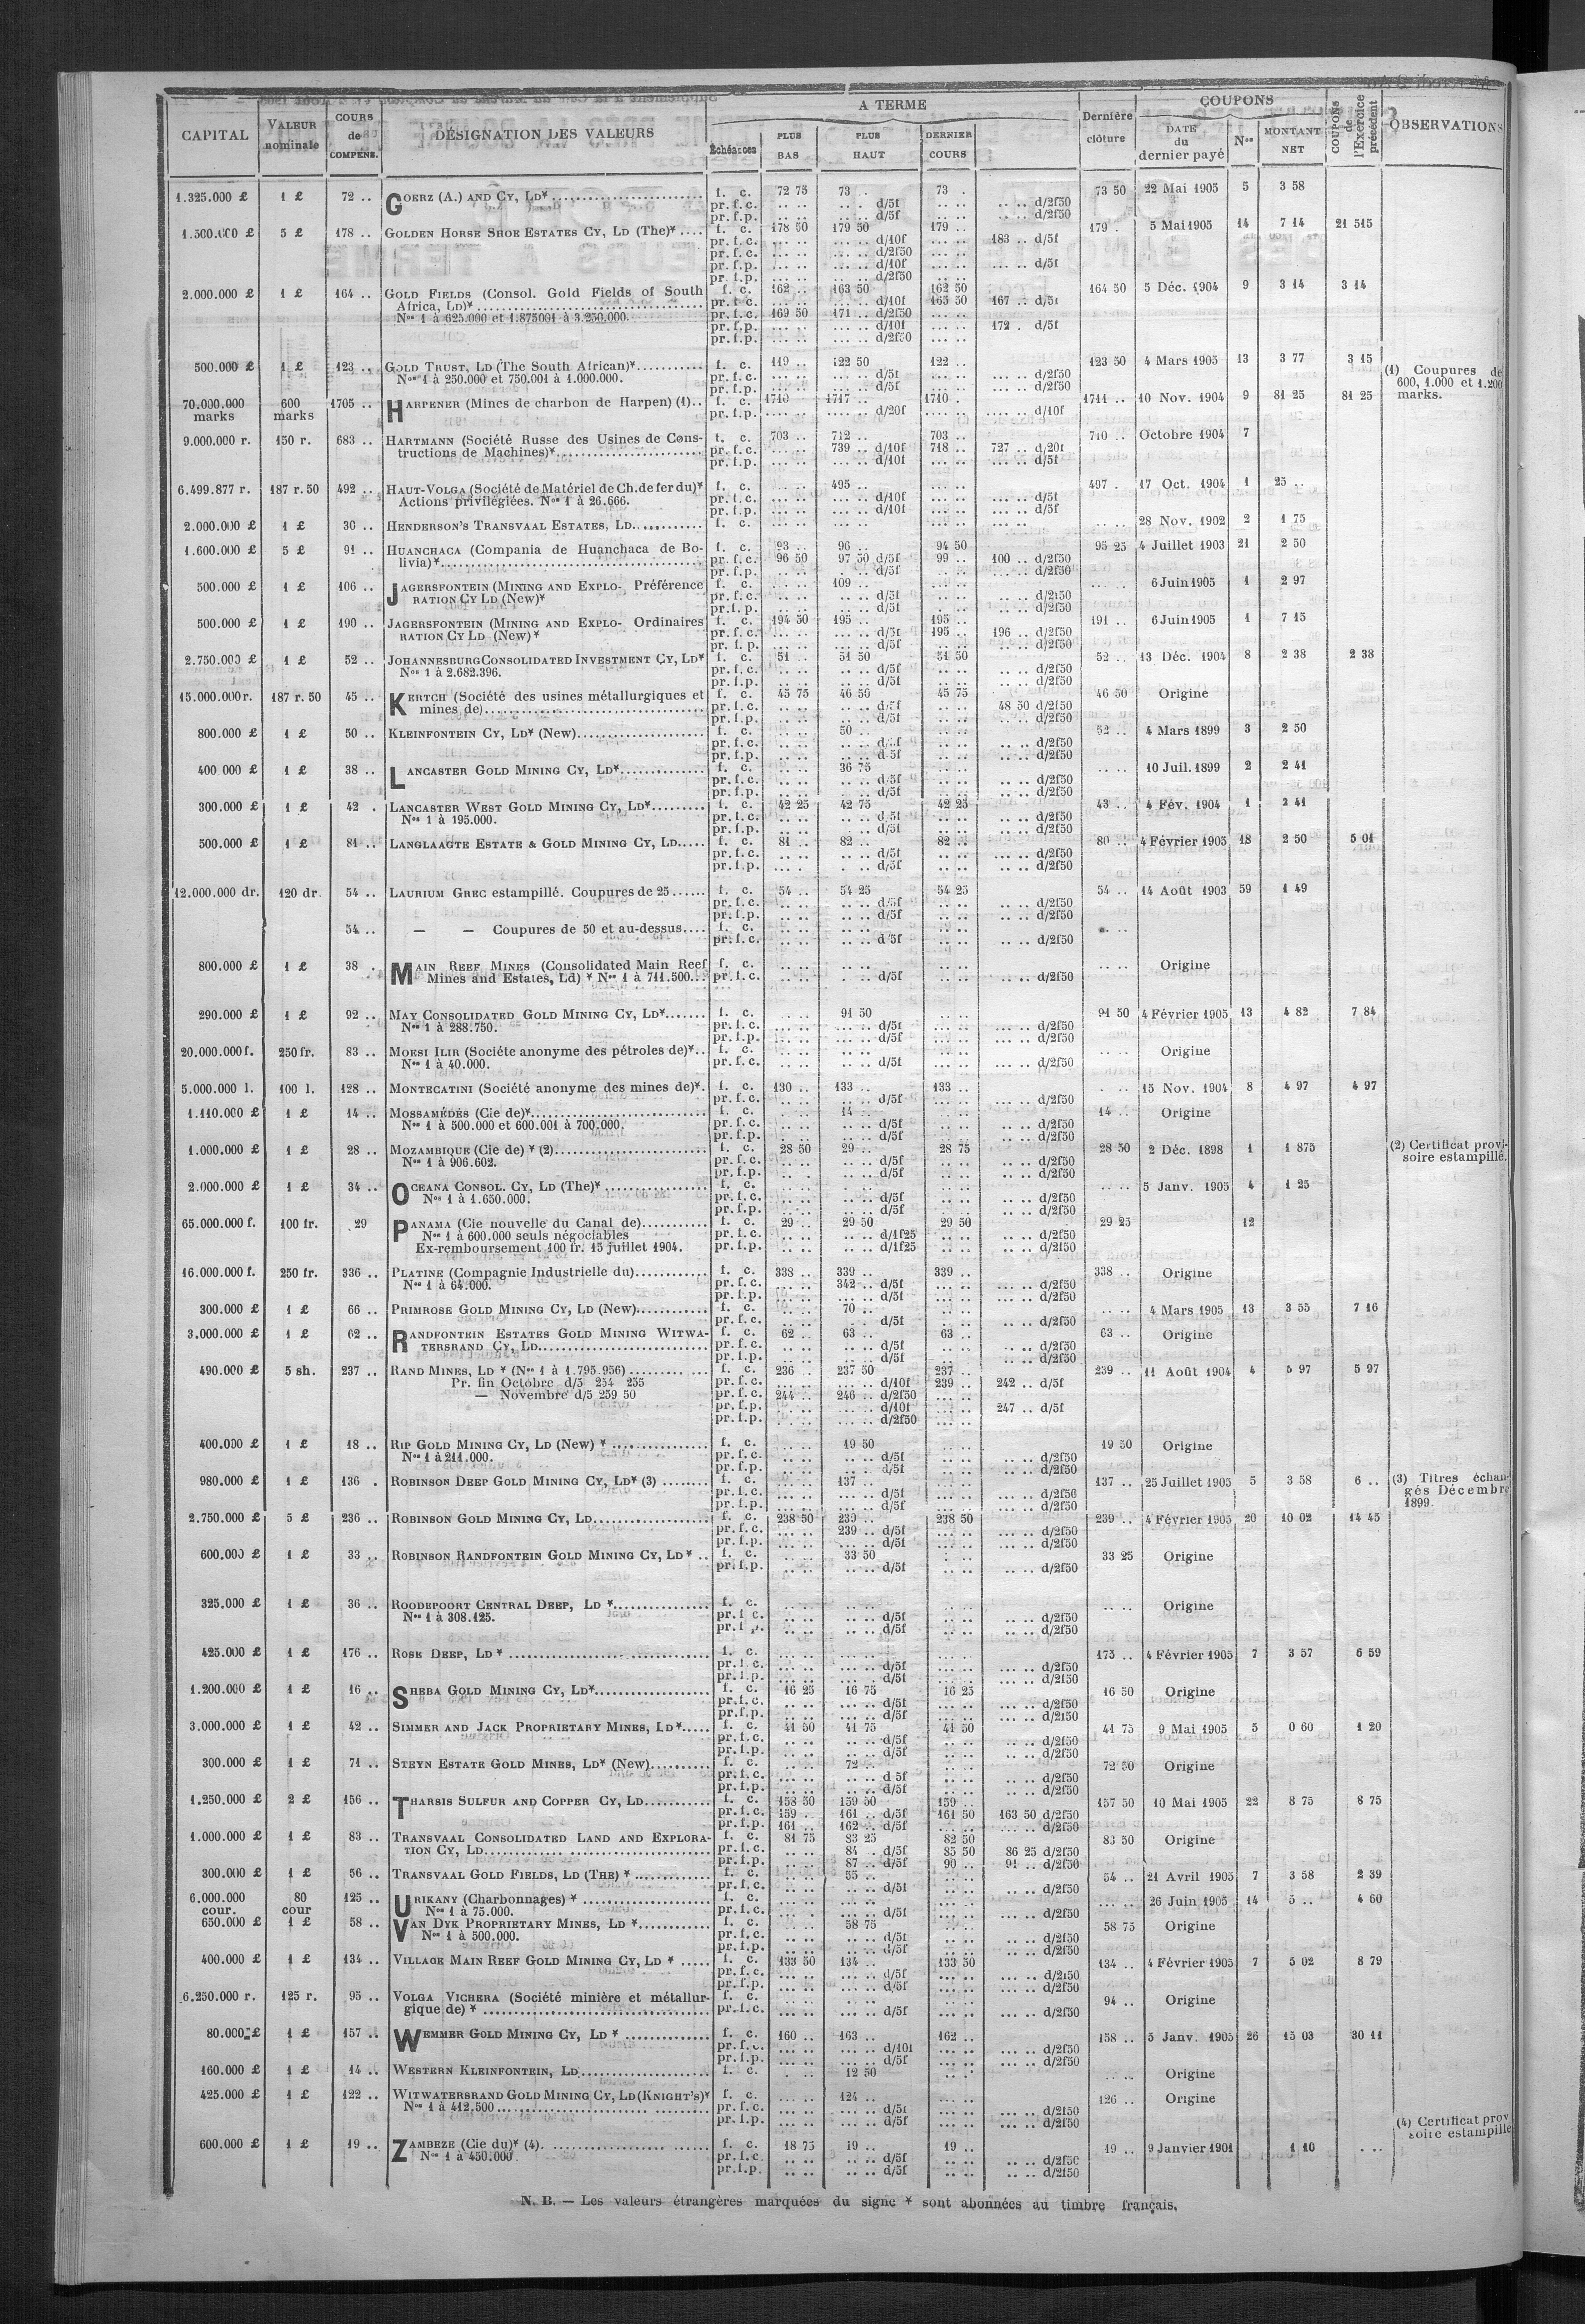 CAPITAL VALEUR nominale COURS de COMPENS. DÉSIGNATION DES VALEURS A TERME Échéances PLUS BAS PLUS HAUT DERNIER COURS Dernière clôture COUPONS DATE du dernier payé Nos MONTANT NET COUPONS de l'Exercice précédent OBSERVATIONS
1.325.000 £ 1 £ 72 .. GOERZ (A.) AND CY, LD* f. c. 72 75 73 .. 73 . 73 50 22 Mai 1905 5 3 58
pr. f. c. .. .. .. . d/5f .. .. .. .. d/2f50
pr. f. p. .. .. .. .. d/5f .. .. .. .. d/2f50
1.500.000 £ 5 £ 178 .. GOLDEN HORSE SHOE ESTATES CY, LD (The)* f. c. 178 50 179 50 179 .. 179 . 5 Mai 1905 14 7 14 21 515
pr. f. c. d/10f 183 .. d/5f
pr. f. c. d/2f50
pr. f. p. d/10f d/5f
pr. f. p. d/2f50
2.000.000 £ 1 £ 164 .. GOLD FIELDS (Consol. Gold Fields of South f. c. 162 .. 163 50 162 50 164 50 5 Déc. 1904 9 3 14 3 14
Africa, LD)* pr. f. c. d/10f 165 50 167 .. d/5f
Nos 1 à 625.000 et 1.875001 à 3.250.000. pr. f. c. 169 50 171 .. d/2f50
pr. f. p. d/10f 172 . d/5f
pr. f. p. d/2f50
500.000 £ 1 £ 123 .. GOLD TRUST, LD (The South African)* f. c. 119 .. 122 50 122 .. 123 50 4 Mars 1905 13 3 77 3 15
Nos 1 à 250.000 et 750.001 à 1.000.000. pr. f. c. d/5f d/2f50
pr. f. p. d/5f d/2f50
(1) Coupures de
600, 1.000 et 1.200
marks.
70.000.000 marks 600 marks 1705 .. HARPENER (Mines de charbon de Harpen) (1).. f. c. 1710 1717 .. 1710 . 1711 .. 10 Nov. 1904 9 81 25 81 25
pr. f. p. d/20f d/10f
9.000.000 r. 150 r. 683 .. HARTMANN (Société Russe des Usines de Cons- f. c. 703 .. 712 .. 703 .. 710 .. Octobre 1904 7
tructions de Machines)* pr. f. c. 739 .. d/10f 718 .. 727 .. d/20f
pr. f. p. d/10f d/5f
6.499.877 r. 187 r. 50 492 .. HAUT-VOLGA (Société de Matériel de Ch. de fer du)* f. c. 495 .. 497 . 17 Oct. 1904 1 25 ..
Actions privilégiées. Nos 1 à 26.666. pr. f. c. d/10f d/5f
pr. f. p. d/10f d/5f
2.000.000 £ 1 £ 30 .. HENDERSON'S TRANSVAAL ESTATES, LD f. c. 28 Nov. 1902 2 1 75
1.600.000 £ 5 £ 91 .. HUANCHACA (Compania de Huanchaca de Bo- f. c. 93 .. 96 .. 94 50 95 25 4 Juillet 1903 21 2 50
livia)* pr. f. c. 96 50 97 50 d/5f 99 .. 100 .. d/2f50
pr. f. p. d/5f d/2f50
500.000 £ 1 £ 106 .. JAGERSFONTEIN (MINING AND EXPLO-, Préférence f. c. 109 .. 6 Juin 1905 1 2 97
RATION CY LD (New)* pr. f. c. d/5f d/2f50
pr. f. p. d/5f d/2f50
500.000 £ 1 £ 190 .. JAGERSFONTEIN (MINING AND EXPLO- Ordinaires f. c. 194 50 195 .. 195 .. 191 .. 6 Juin 1905 1 7 15
RATION CY LD (New)* pr. f. c. d/5f 195 .. 196 .. d/2f50
pr. f. p. d/5f d/2f50
2.750.000 £ 1 £ 52 .. JOHANNESBURG CONSOLIDATED INVESTMENT CY, LD* f. c. 51 .. 51 50 51 50 52 .. 13 Déc. 1904 8 2 38 2 38
Nos 1 à 2.682.396. pr. f. c. d/5f d/2f50
pr. f. p. d/5f d/2f50
15.000.000 r. 187 r. 50 45 .. KERTCH (Société des usines métallurgiques et f. c. 45 75 46 50 45 75 46 50 Origine
mines de) pr. f. c. d/5f 48 50 d/2f50
pr. f. p. d/5f d/2f50
800.000 £ 1 £ 50 .. KLEINFONTEIN CY, LD* (New) f. c. 50 .. 52 .. 4 Mars 1899 3 2 50
pr. f. c. d/5f d/2f50
pr. f. p. d/5f d/2f50
400.000 £ 1 £ 38 .. LANCASTER GOLD MINING CY, LD* f. c. 36 75 10 Juil. 1899 2 2 41
pr. f. c. d/5f d/2f50
pr. f. p. d/5f d/2f50
300.000 £ 1 £ 42 . LANCASTER WEST GOLD MINING CY, LD* f. c. 42 25 42 75 42 25 43 .. 4 Fév. 1904 1 2 41
Nos 1 à 195.000. pr. f. c. d/5f d/2f50
pr. f. p. d/5f d/2f50
500.000 £ 1 £ 81 .. LANGLAAGTE ESTATE & GOLD MINING CY, LD f. c. 81 .. 82 .. 82 .. 80 .. 4 Février 1905 18 2 50 5 01
pr. f. c. d/5f d/2f50
pr. f. p. d/5f d/2f50
12.000.000 dr. 120 dr. 54 .. LAURIUM GREC estampillé. Coupures de 25 f. c. 54 .. 54 25 54 25 54 .. 14 Août 1903 59 1 49
pr. f. c. d/5f d/2f50
pr. f. p. d/5f d/2f50
54 .. — — Coupures de 50 et au-dessus f. c.
pr. f. c. d/5f d/2f50
800.000 £ 1 £ 38 . MAIN REEF MINES (Consolidated Main Reef f. c. Origine
Mines and Estates, Ld) * Nos 1 à 711.500 pr. f. c. d/5f d/2f50
290.000 £ 1 £ 92 .. MAY CONSOLIDATED GOLD MINING CY, LD* f. c. 91 50 91 50 4 Février 1905 13 4 82 7 84
Nos 1 à 288.750. pr. f. c. d/5f d/2f50
pr. f. p. d/5f d/2f50
20.000.000 f. 250 fr. 83 .. MOESI ILIR (Sociéte anonyme des pétroles de)* f. c. Origine
Nos 1 à 40.000. pr. f. c. d/5f d/2f50
5.000.000 l. 100 l. 128 .. MONTECATINI (Société anonyme des mines de)* f. c. 130 .. 133 .. 133 .. 15 Nov. 1904 8 4 97 4 97
pr. f. c. d/5f d/2f50
1.110.000 £ 1 £ 14 .. MOSSAMÉDÈS (Cie de)* f. c. 14 .. 14 .. Origine
Nos 1 à 500.000 et 600.001 à 700.000. pr. f. c. d/5f d/2f50
pr. f. p. d/5f d/2f50
1.000.000 £ 1 £ 28 .. MOZAMBIQUE (Cie de) * (2) f. c. 28 50 29 .. 28 75 28 50 2 Déc. 1898 1 1 875 (2) Certificat provi-
Nos 1 à 906.602. pr. f. c. d/5f d/2f50 soire estampillé.
pr. f. p. d/5f d/2f50
2.000.000 £ 1 £ 34 .. OCEANA CONSOL. CY, LD (The)* f. c. 5 Janv. 1905 4 1 25
Nos 1 à 1.650.000. pr. f. c. d/5f d/2f50
pr. f. p. d/5f d/2f50
65.000.000 f. 100 fr. 29 PANAMA (Cie nouvelle du Canal de) f. c. 29 .. 29 50 29 50 29 25 12
Nos 1 à 600.000 seuls négociables pr. f. c. d/1f25 d/2f50
Ex-remboursement 100 fr. 15 juillet 1904. pr. f. p. d/1f25 d/2f50
16.000.000 f. 250 fr. 336 .. PLATINE (Compagnie Industrielle du) f. c. 338 .. 339 .. 339 .. 338 .. Origine
Nos 1 à 64.000. pr. f. c. 342 .. d/5f d/2f50
pr. f. p. d/5f d/2f50
300.000 £ 1 £ 66 .. PRIMROSE GOLD MINING CY, LD (New) f. c. 70 .. 4 Mars 1905 13 3 55 7 16
pr. f. c. d/5f d/2f50
3.000.000 £ 1 £ 62 .. RANDFONTEIN ESTATES GOLD MINING WITWA- f. c. 62 .. 63 .. 63 .. 63 .. Origine
TERSRAND CY, LD pr. f. c. d/5f d/2f50
pr. f. p. d/5f d/2f50
490.000 £ 5 sh. 237 .. RAND MINES, LD * (Nos 1 à 1.795.956) f. c. 236 .. 237 50 237 .. 239 .. 11 Août 1904 4 5 97 5 97
Pr. fin Octobre d/5 254 255 pr. f. c. d/10f 239 .. 242 .. d/5f
— Novembre d/5 259 50 pr. f. c. 244 .. 246 .. d/2f50
pr. f. p. d/10f 247 .. d/5f
pr. f. p. d/2f50
400.000 £ 1 £ 18 .. RIP GOLD MINING CY, LD (New) * f. c. 19 50 19 50 Origine
Nos 1 à 211.000. pr. f. c. d/5f d/2f50
pr. f. p. d/5f d/2f50
980.000 £ 1 £ 136 . ROBINSON DEEP GOLD MINING CY, LD* (3) f. c. 137 .. 137 .. 25 Juillet 1905 5 3 58 6 .. (3) Titres échan-
pr. f. c. d/5f d/2f50 gés Décembre
pr. f. p. d/5f d/2f50 1899.
2.750.000 £ 5 £ 236 .. ROBINSON GOLD MINING CY, LD f. c. 238 50 239 .. 238 50 239 .. 4 Février 1905 20 10 02 14 45
pr. f. c. 239 .. d/5f d/2f50
pr. f. p. d/5f d/2f50
600.000 £ 1 £ 33 .. ROBINSON RANDFONTEIN GOLD MINING CY, LD* f. c. 33 50 33 25 Origine
pr. f. p. d/5f d/2f50
325.000 £ 1 £ 36 .. ROODEPOORT CENTRAL DEEP, LD * f. c. Origine
Nos 1 à 308.125. pr. f. c. d/5f d/2f50
pr. f. p. d/5f d/2f50
425.000 £ 1 £ 176 .. ROSE DEEP, LD * f. c. 175 .. 4 Février 1905 7 3 57 6 59
pr. f. c. d/5f d/2f50
pr. f. p. d/5f d/2f50
1.200.000 £ 1 £ 16 .. SHEBA GOLD MINING CY, LD* f. c. 16 25 16 75 16 25 16 50 Origine
pr. f. c. d/5f d/2f50
pr. f. p. d/5f d/2f50
3.000.000 £ 1 £ 42 .. SIMMER AND JACK PROPRIETARY MINES, LD* f. c. 41 50 41 75 41 50 41 75 9 Mai 1905 5 0 60 1 20
pr. f. c. d/5f d/2f50
pr. f. p. d/5f d/2f50
300.000 £ 1 £ 71 .. STEYN ESTATE GOLD MINES, LD* (New) f. c. 72 .. 72 50 Origine
pr. f. c. d/5f d/2f50
pr. f. p. d/5f d/2f50
1.250.000 £ 2 £ 156 .. THARSIS SULFUR AND COPPER CY, LD f. c. 158 50 159 50 159 .. 157 50 10 Mai 1905 22 8 75 8 75
pr. f. c. 159 . 161 .. d/5f 161 50 163 50 d/2f50
pr. f. p. 161 .. 162 .. d/5f d/2f50
1.000.000 £ 1 £ 83 .. TRANSVAAL CONSOLIDATED LAND AND EXPLORA- f. c. 81 75 83 25 82 50 83 50 Origine
TION CY, LD pr. f. c. 84 . d/5f 85 50 86 25 d/2f50
pr. f. p. 87 .. d/5f 90 .. 91 .. d/2f50
300.000 £ 1 £ 56 .. TRANSVAAL GOLD FIELDS, LD (THE) * f. c. 55 .. 54 .. 21 Avril 1905 7 3 58 2 39
pr. f. c. d/5f d/2f50
6.000.000 cour. 80 cour 125 .. URIKANY (Charbonnages) * f. c. 26 Juin 1905 14 5 .. 4 60
Nos 1 à 75.000. pr. f. c. d/5f d/2f50
650.000 £ 1 £ 58 .. VAN DYK PROPRIETARY MINES, LD * f. c. 58 75 58 75 Origine
Nos 1 à 500.000. pr. f. c. d/5f d/2f50
pr. f. p. d/5f d/2f50
400.000 £ 1 £ 134 .. VILLAGE MAIN REEF GOLD MINING CY, LD * f. c. 133 50 134 .. 133 50 134 .. 4 Février 1905 7 5 02 8 79
pr. f. c. d/5f d/2f50
pr. f. p. d/5f d/2f50
6.250.000 r. 125 r. 95 .. VOLGA VICHERA (Société minière et métallur- f. c. 94 .. Origine
gique de) * pr. f. c. d/5f d/2f50
80.000 £ 1 £ 157 .. WEMMER GOLD MINING CY, LD * f. c. 160 .. 163 .. 162 .. 158 .. 5 Janv. 1905 26 15 03 30 11
pr. f. c. d/10f d/2f50
pr. f. p. d/5f d/2f50
160.000 £ 1 £ 14 .. WESTERN KLEINFONTEIN, LD f. c. 12 50 Origine
425.000 £ 1 £ 122 .. WITWATERSRAND GOLD MINING CY, LD (KNIGHT'S)* f. c. 124 .. 126 .. Origine
Nos 1 à 412.500 pr. f. c. d/5f d/2f50
pr. f. p. d/5f d/2f50
(4) Certificat prov
soire estampille
600.000 £ 1 £ 19 .. ZAMBEZE (Cie du)* (4). f. c. 18 75 19 .. 19 .. 19 .. 9 Janvier 1901 1 10
Nos 1 à 450.000. pr. f. c. d/5f d/2f50
pr. f. p. d/5f d/2f50
N. B. — Les valeurs étrangères marquées du signe * sont abonnées au timbre français.